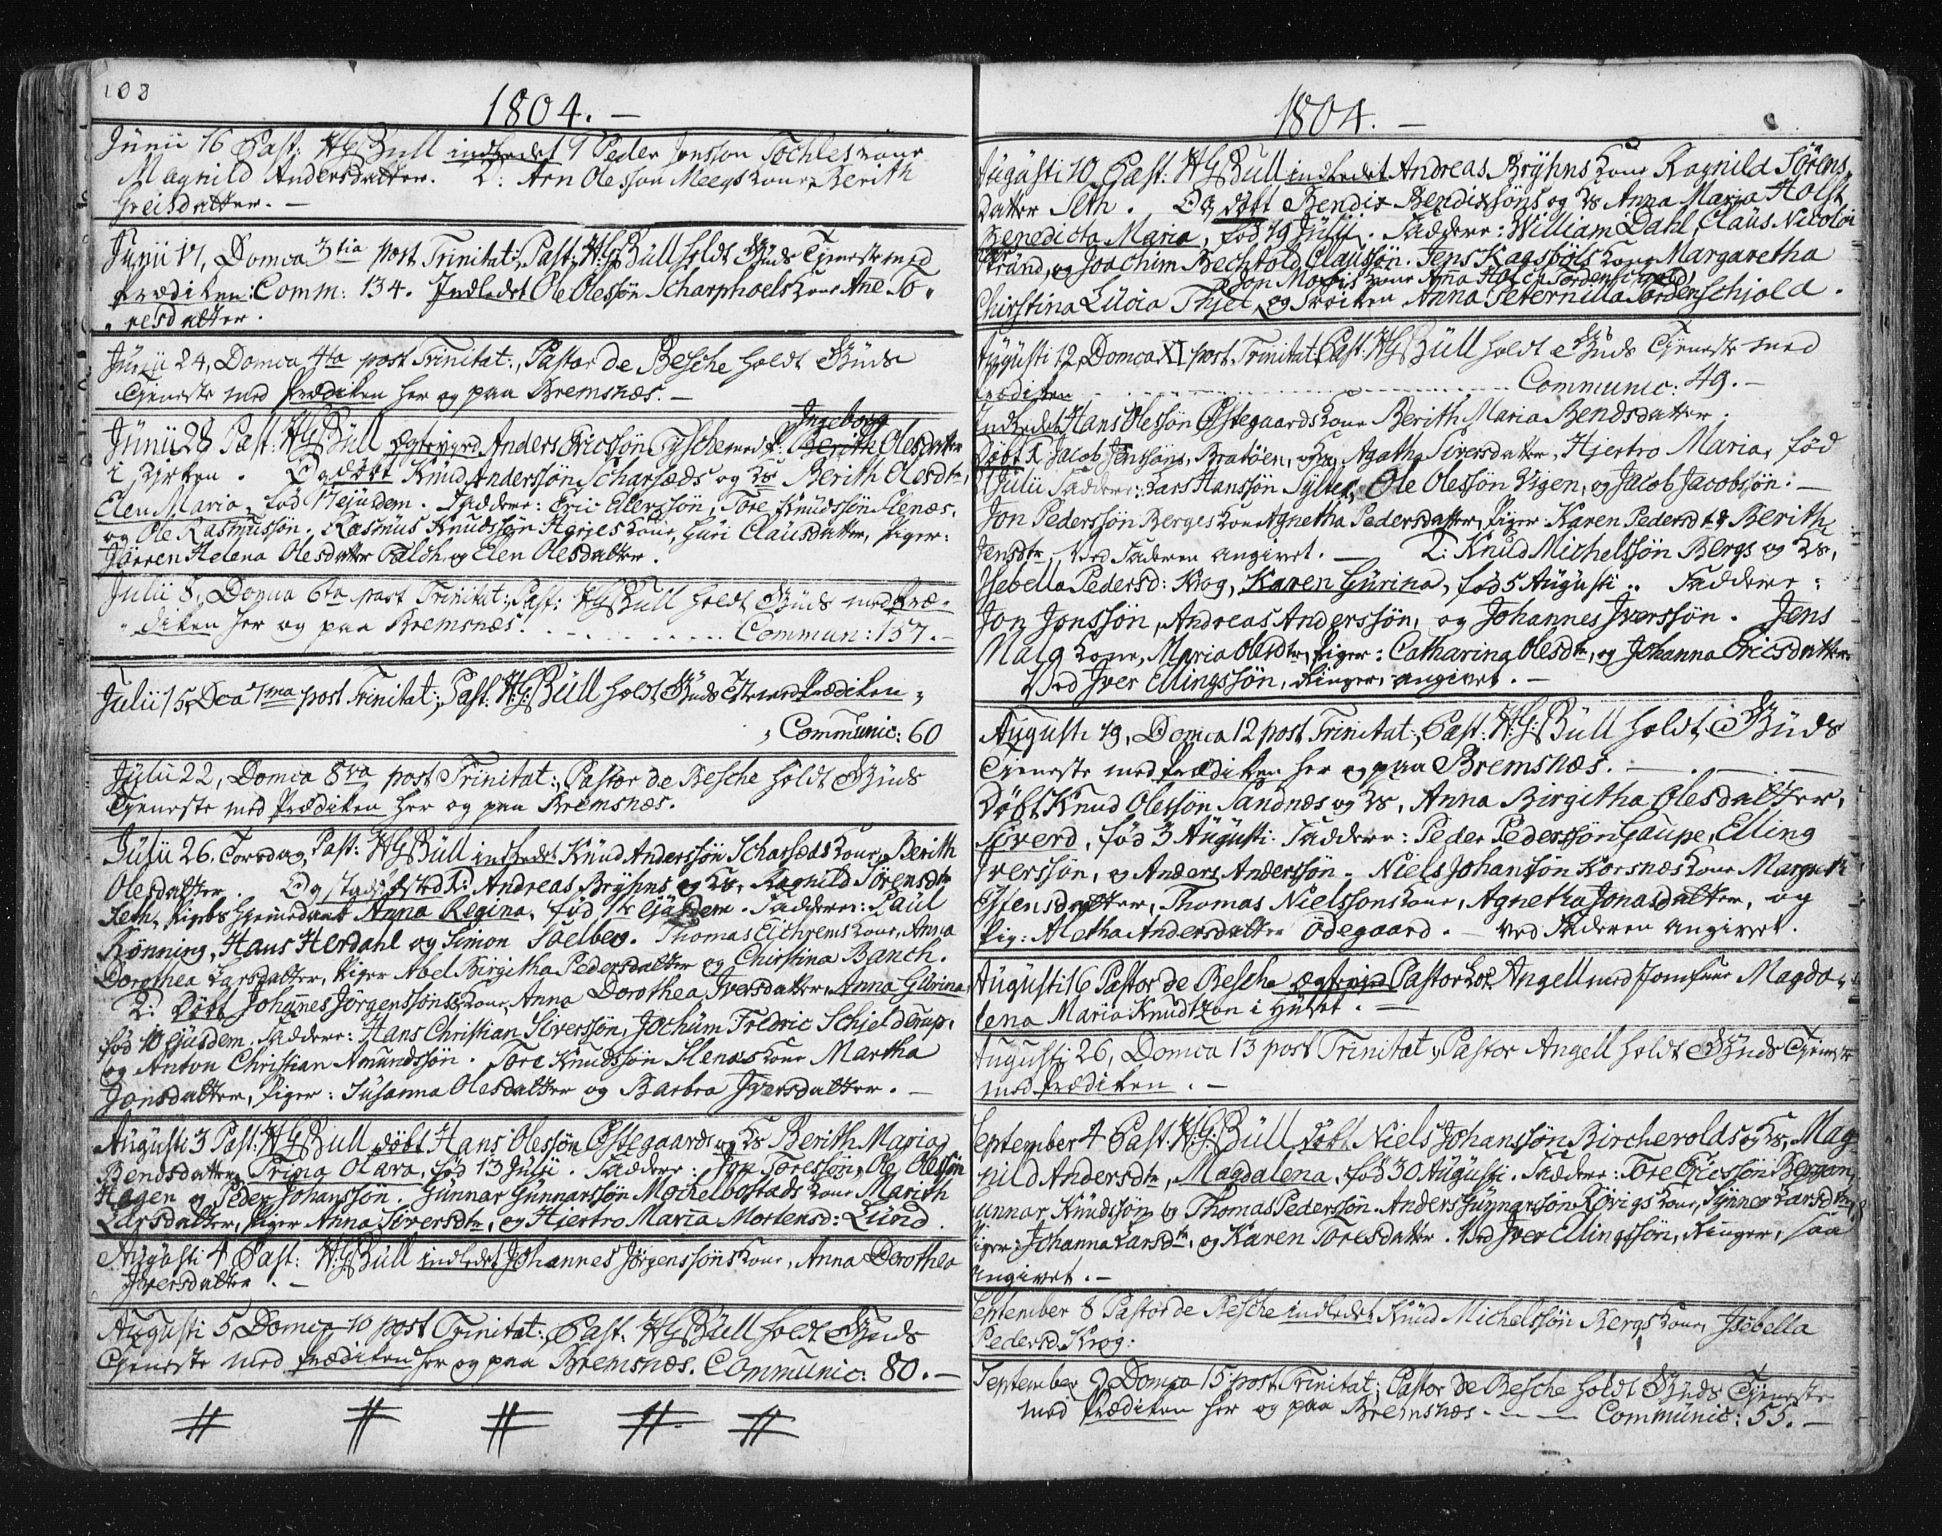 108
1804. —
Junii 16 Past: HG Büll indledet 1 Peder Jonsson Tochles kone
Magnild Andersdatter. 2: Arn Olesson Meegs kone, Berith
Greisdatter. —
Junii 17, Domca 3tia post Trinitat:, Past: H:G:Büll holdt Guds Tjeneste med
Prædiken: Comm: 134. Indledet Ole Olessøn Scharphoels kone Ane To-
resdatter.
Junii 24, Domca 4ta post Trinitat:, Pastor de Besche holdt Guds
Tjeneste med Prædiken her og paa Bremsnæs. —
Ingeborg
Junii 28 Past: HG Büll Egteviged Anders Ericssøn Tysche med P: Berith Olesdatter
i Kirken. Og døbt Knud Anderssøn Scharsæds og Hs Berith Olesdtr,
Elen Maria, fød 17 ejusdem. Faddere: Eric Elerssøn, Tore Knudssøn Stenæs,
og Ole Rasmussøn. Rasmus Knudssøn Hagies kone, Guri Clausdatter, Piger:
Jørren Helena Olesdatter Folch, og Elen Olesdatter.
Julii 8, Domca 6ta post Trinitat:, Past: HG Büll holdt Guds med Præ-
diken her og paa Bremsnæs. . . . . . . . Commun: 157. —
Julii 15, Dca 7ma post Trinitat:, Past: H:G: Büll holdt Guds Tte med Prædiken
Communic: 60
Julii 22, Domca 8va post Trinitat:, Pastor de Besche holdt Guds
Tjeneste med Prædiken her og paa Bremsnæs.
Julii 26, Torsdag, Past: HG Büll indledet Knud Anderssøn Scharsæds kone, Berith
Olesdatter. Og stadfæsted 1: Andreas Bryhns og Hs, Ragnild Sørensdtr
Seth, Pigebs hjemedøbt Anna Regina, fød 14 ejusdem. Faddere: Paul
Rønning, Hans Herdahl og Simon Soelberg. Thomas Eichrems kone, Anna
Dorothea Larsdatter, Piger Abel Birgitha Pedersdatter og Chirstina Banch.
2: Døbt Johannes Jørgenssøns kone, Anna Dorothea Iversdatter, Anna Gurina,
fød 10 ejusdem. Faddere: Hans Christian Siverssøn, Jochum Fredric Schjelderup,
og Anton Christian Amundssøn. Tore Knudssøn Stenæs kone Martha
Jonsdatter, Piger: Susanna Olesdatter og Barbra Iversdatter. —
Augusti 3 Past: HG Büll døbt Hans Olessøn Østegaards og Hs Berith Maria
Bendsdatter, Trina Olava, fød 13 Julii. Faddere: Jon Toressøn, Ole Olessøn
Hagen og Peder Johanssøn. Gunnar Gunnarssøn Mochelbostads kone Marith
Larsdatter, Piger Anna Siversdtr, og Hjertro Maria Mortensd: Lund.
Augusti 4 Past: H:G Büll indledet Johannes Jørgenssøns kone, Anna Dorothea
Iversdatter. —
Augusti 5 Domca 10 post Trinitat:, Past: HG Büll holdt Guds
Tjeneste med Prædiken her og paa Bremsnæs. Communic: 80. —
1804. —
Augusti 10, Past: H:G: Büll indledet Andreas Bryhns kone Ragnild Sørens-
datter Seth. Og døbt Bendix Bendixsøns og Hs Anna Maria Holst,
Benedicta Maria, fød 19 Julii. Faddere: William Dahl, Claus Nicolai
Strand, og Joachim Bechtold Claussøn. Jens Kagsbøls kone Margaretha
Jon Moxis kone Anna Holch Tordenschjold,
Chirstina Lucia Thiel, og Frøiken Anna Peternilla Tordenschjold.
Augusti 12, Domca XI post Trinitat:, Past: H:G Büll holdt Guds Tjeneste med
Prædiken . . . . . . . . Communic: 49. —
Indledet Hans Olessøn Østegaards kone Berith Maria Bendsdatter.
Døbt 1: Jacob Jenssøns, Bratøen, og Hs, Agatha Siversdatter, Hjertro Maria, fød
Julii Faddere: Lars Hanssøn Sylte, Ole Olessøn Vigen, og Jacob Jacobsøn. —
Jon Pederssøn Berges kone Agnetha Pedersdatter, Piger Karen Pedersdtr & Berith
Jensdtr, Ved Faderen angivet. — 2: Knud Michelssøn Bergs og Hs,
Isebella Pedersd: Krog, Karen Gurina, fød 5 Augusti. Faddere:
Jon Jonssøn, Andreas Anderssøn, og Johannes Iverssøn. Jens
Malø kone, Maria Olesdtr, Piger: Catharina Olesdtr, og Johanna Ericsdatter
Ved Iver Ellingssøn, Ringer, angivet. —
Augusti 19, Domca 12 post Trinitat:, Past: H:G: Büll holdt Guds
Tjeneste med Prædiken her og paa Bremsnæs. —
Døbt Knud Olessøn Sandnæs og Hs, Anna Birgitha Olesdatter,
Siverd, fød 3 Augusti. Faddere: Peder Pederssøn Gaupe, Elling
Iverssøn, og Anders Anderssøn. Niels Johansøn Korsnæs kone Margreth
Offensdatter, Thomas Nielssøns kone, Agnetha Jonasdatter, og
Pig: Aletha Andersdatter Ødegaard. — Ved Faderen angivet.
Augusti 16 Pastor de Besche Egteviede Pastor Angell med Jomfrue Magda-
lena Maria Knudtzon i Huset. —
Augusti 26, Domca 13 post Trinitat:, Pastor Angell holdt Guds Tjeneste
med Prædiken. —
September 4 Past: H:G: Büll Døbt Niels Johanssøn Bircherolds og Hs, Mag-
nild Andersdtr, Magdalena, fød 30 Augusti. Faddere: Tore Ericssøn Bergan,
Gunnar Knudssøn og Thomas Pederssøn. Anders Gunnarssøn Røvigs kone, Synnev Larsdtr,
Piger: Johanna Larsdtr, og Karen Toresdatter. Ved Iver Ellingssøn, Ringer, saa
angivet. —
September 8 Pastor de Besche indledet Knud Michelssøn Bergs kone, Isebella
Pedersd: Krog.
September 9 Domca 15 post Trinitat:, Pastor de Besche holdt Guds Tjeneste
med Prædiken her og paa Bremsnæs. — — — Communic: 55. —